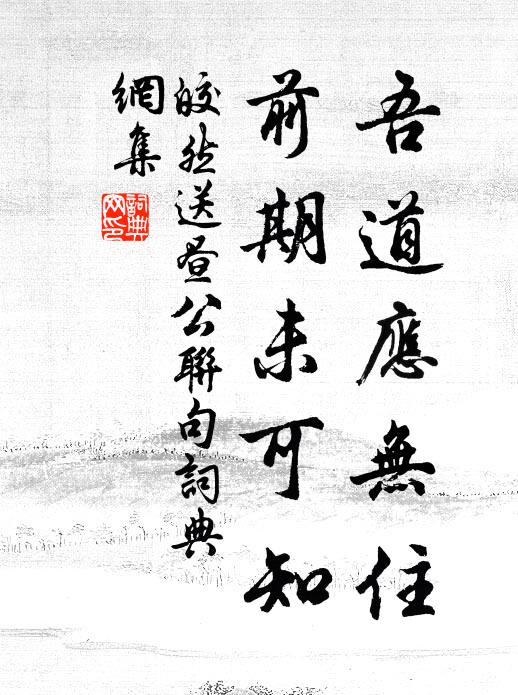 吾道應無住
前期未可知
皎然送晝公聯句詞典
網集
詞典
網印